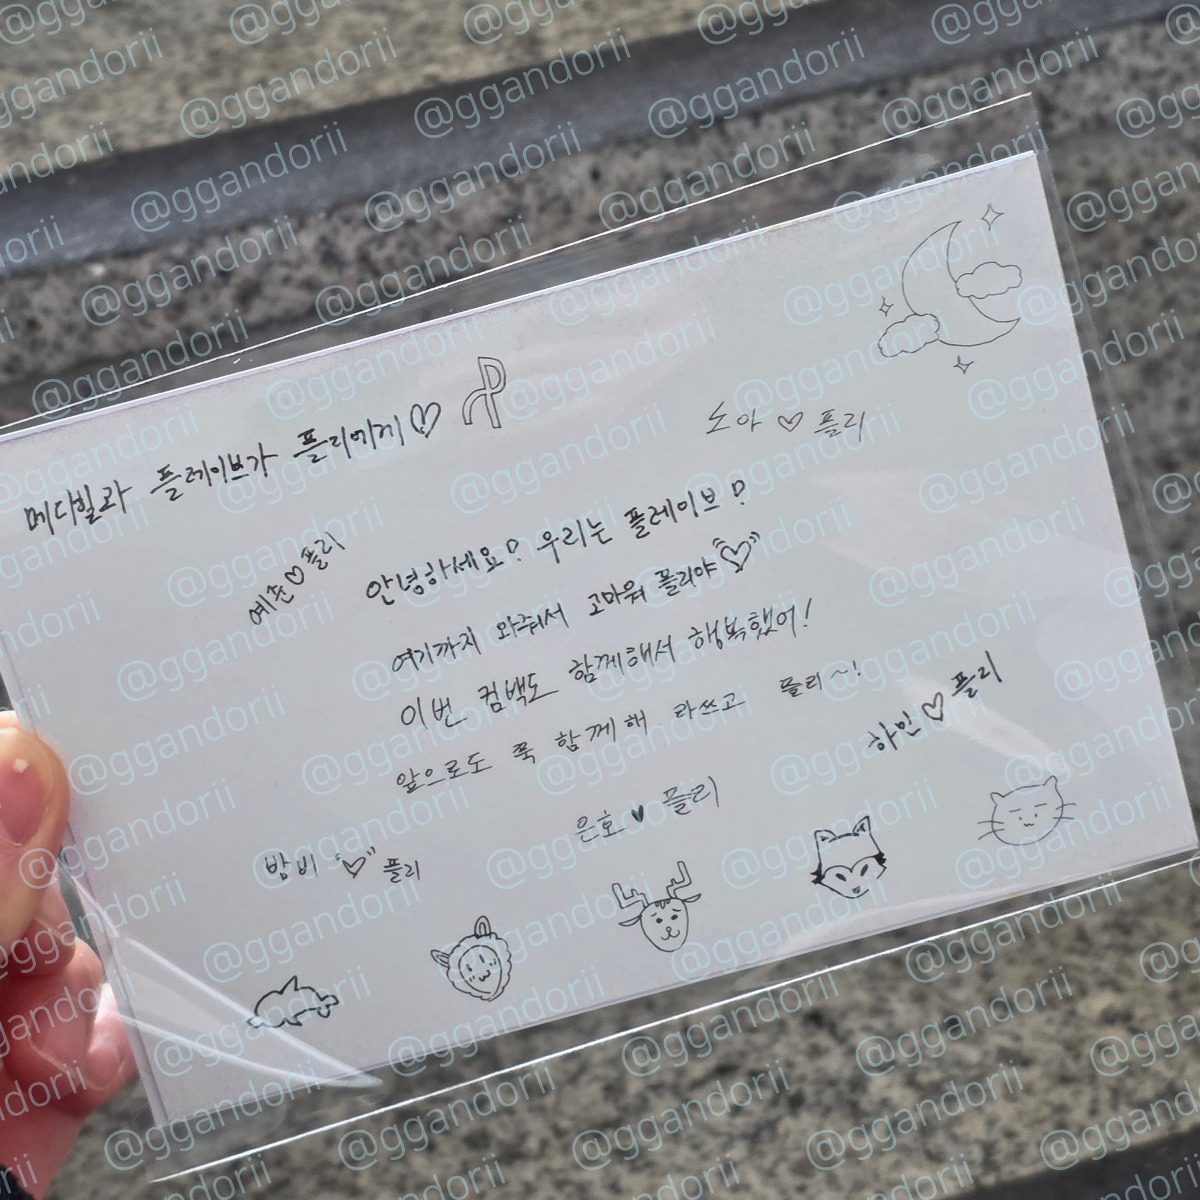 메디힐과 플레이브가 플리에게♡
노아 ♡ 플리
예준♡플리
안녕하세요? 우리는 플레이브?
여기까지 와줘서 고마워 플리야♡
이번 컴백도 함께해서 행복했어!
앞으로도 쭉 함께해 라쓰고 플리~!
하민♡플리
은호♥플리
밤비"♡"플리
@ggandorii